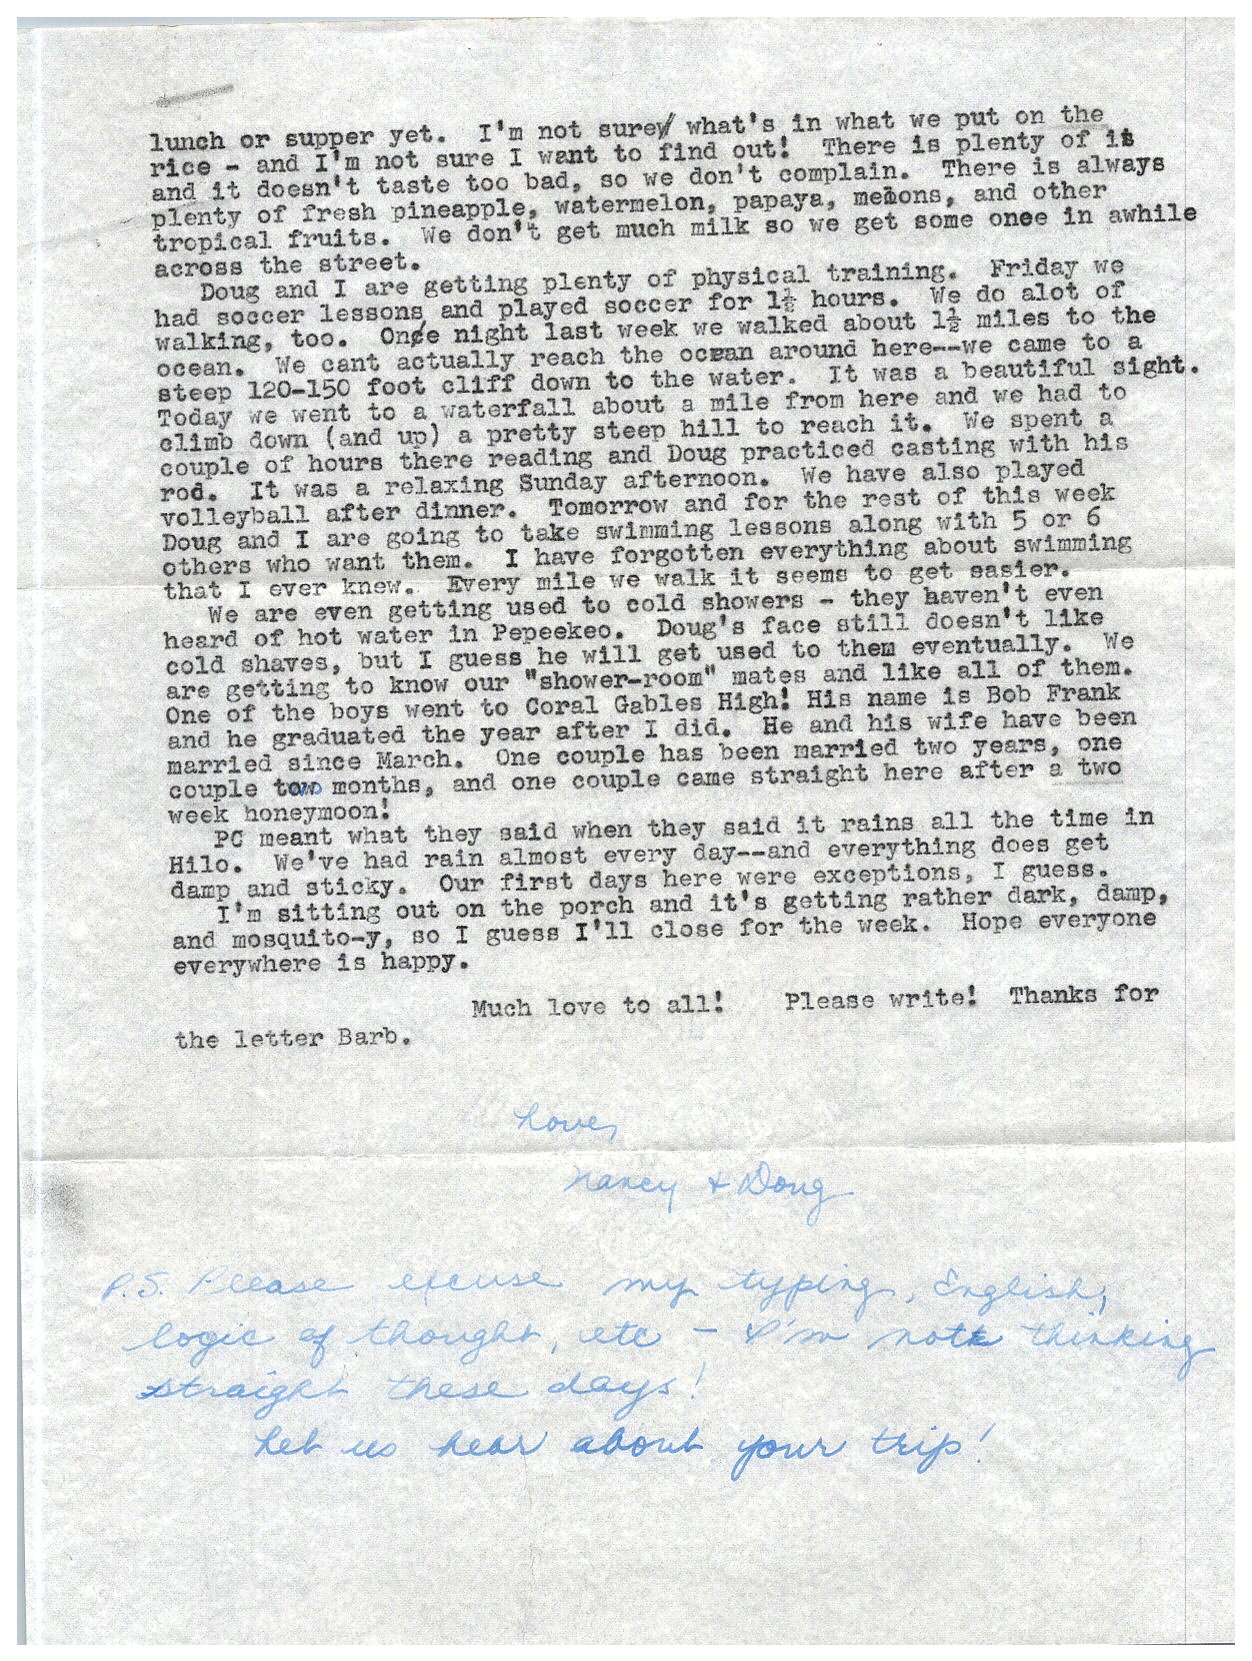 lunch or supper yet.  I'm not sure what's in what we put on the
rice - and I'm not sure I want to find out!  There is plenty of it
and it doesn't taste too bad, so we don't complain.  There is always
plenty of fresh pineapple, watermelon, papaya, melons, and other
tropical fruits.  We don't get much milk so we get some once in awhile
across the street.
Doug and I are getting plenty of physical training.  Friday we
had soccer lessons and played soccer for 1½ hours.  We do alot of
walking, too.  One night last week we walked about 1½ miles to the
ocean.  We cant actually reach the ocean around here--we came to a
steep 120-150 foot cliff down to the water.  It was a beautiful sight.
Today we went to a waterfall about a mile from here and we had to
climb down (and up) a pretty steep hill to reach it.  We spent a
couple of hours there reading and Doug practiced casting with his
rod.  It was a relaxing Sunday afternoon.  We have also played
volleyball after dinner.  Tomorrow and for the rest of this week
Doug and I are going to take swimming lessons along with 5 or 6
others who want them.  I have forgotten everything about swimming
that I ever knew.  Every mile we walk it seems to get easier.
We are even getting used to cold showers - they haven't even
heard of hot water in Pepeekeo.  Doug's face still doesn't like
cold shaves, but I guess he will get used to them eventually.  We
are getting to know our "shower-room" mates and like all of them.
One of the boys went to Coral Gables High! His name is Bob Frank
and he graduated the year after I did.  He and his wife have been
married since March.  One couple has been married two years, one
couple two months, and one couple came straight here after a two
week honeymoon!
PC meant what they said when they said it rains all the time in
Hilo.  We've had rain almost every day--and everything does get
damp and sticky.  Our first days here were exceptions, I guess.
I'm sitting out on the porch and it's getting rather dark, damp,
and mosquito-y, so I guess I'll close for the week.  Hope everyone
everywhere is happy.
Much love to all!    Please write!  Thanks for
the letter Barb.
Love,
Nancy + Doug
P.S. Please excuse my typing, English,
logic of thought, etc - I'm not thinking
straight these days!
Let us hear about your trip!